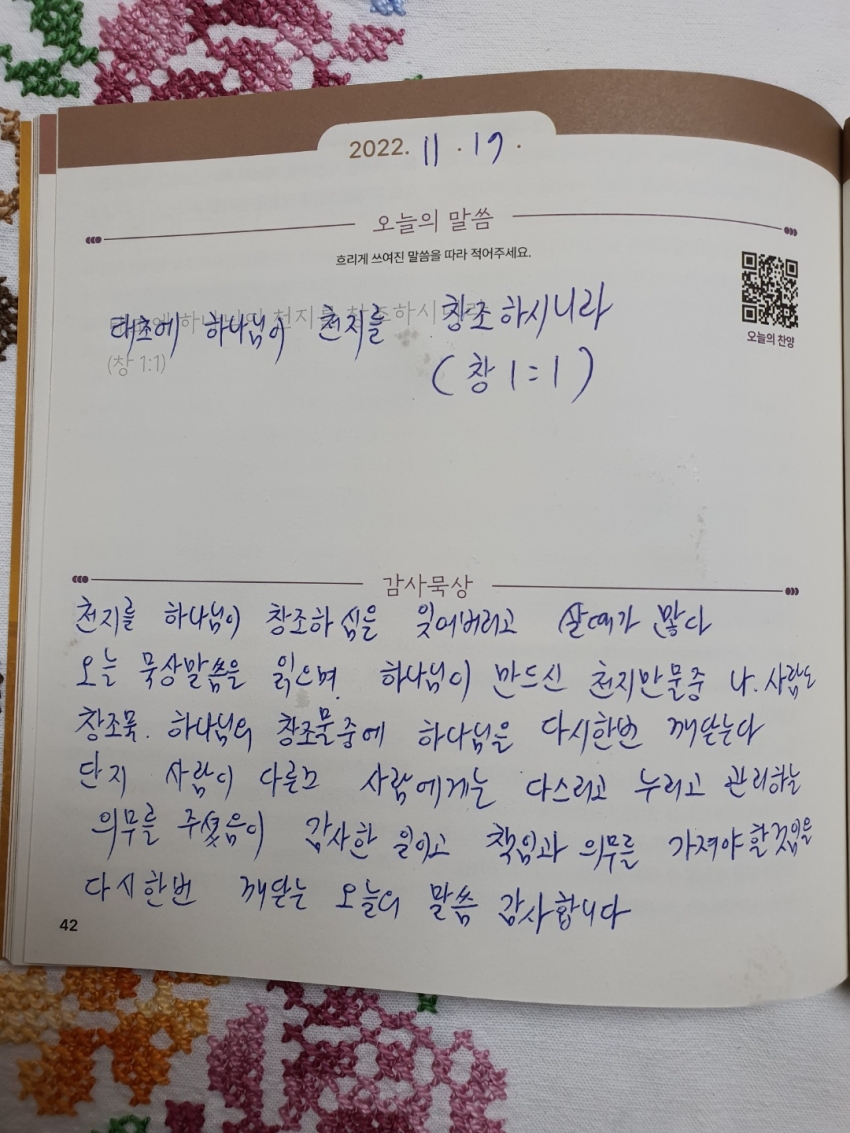 2022. 11 . 19 .
오늘의 말씀
흐리게 쓰여진 말씀을 따라 적어주세요.
태초에 하나님이 천지를 창조하시니라
(창 1:1)
태초에 하나님이 천지를 창조하시니라
(창 1:1)
오늘의 찬양
감사묵상
천지를 하나님이 창조하심을 잊어버리고 살때가 많다
오늘 묵상말씀을 읽으며 하나님이 만드신 천지만물중 나. 사람도
창조물. 하나님의 창조물중에 하나님을 다시한번 깨닫는다
단지 사람이 다른 사람에게는 다스리고 누리고 관리하는
의무를 주셨음이 감사한 일이고 책임과 의무를 가져야 할것임을
다시한번 깨닫는 오늘의 말씀 감사합니다
42